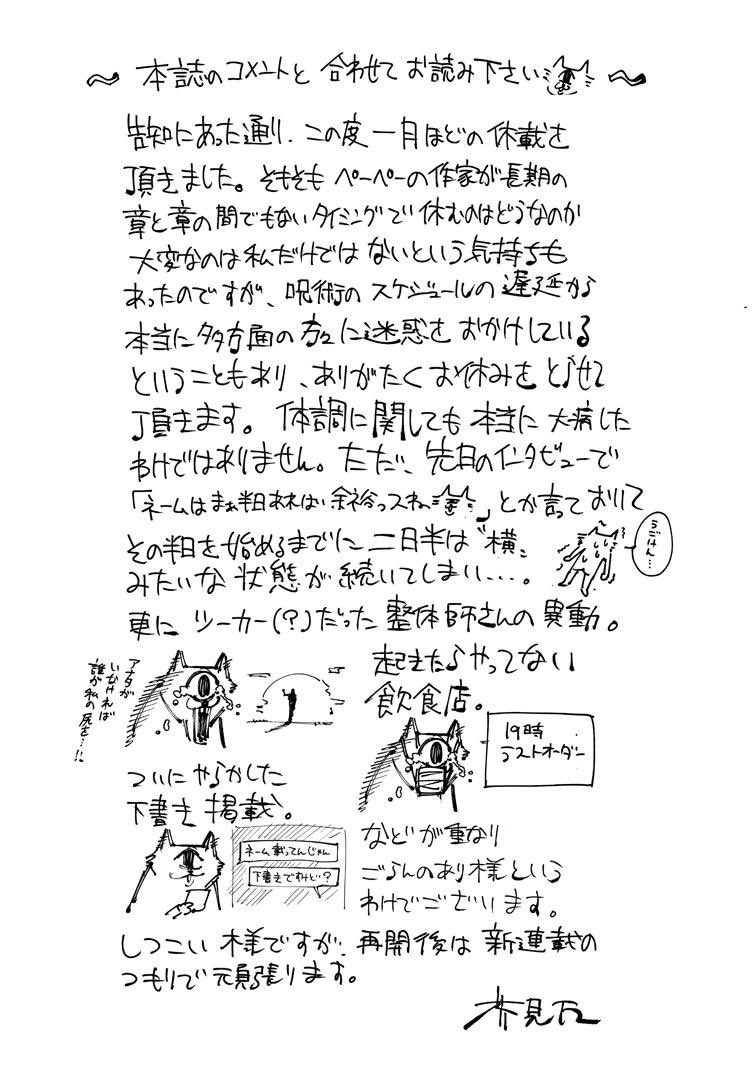 〜 本誌のコメントと 合わせて お読み下さい 〜
告知にあった通り、この度一月ほどの休載を
頂きました。そもそも ペーペーの作家が長期の
章と章の間でもないタイミングで休むのはどうなのか
大変なのは私だけでは ないという気持ちも
あったのですが、呪術の スケジュールの 遅延から
本当に多方面の方々に迷惑を おかけしている
ということもあり、ありがたくお休みを とらせて
頂きます。 体調に関しても 本当に 大病した
わけではありません。ただ、先日のインタビューで
「ネームはまぁ半日あれば余裕っスね」とか言っておいて
その半日を始めるまでに 二日半は〝横〟
みたいな 状態が 続いてしまい…。
うごけん…
更に ツーカー(?)だった 整体師さんの 異動。
アナタが
いなければ
誰が私の尻を…!!
起きたらやってない
飲食店。
19時
ラストオーダー
ついに やらかした
下書き 掲載。
ネーム載ってんじゃん
下書きですけど?
などが重なり
ごらんのあり様という
わけでございます。
しつこい 様ですが、再開後は 新連載の
つもりで 頑張ります。
芥見下々